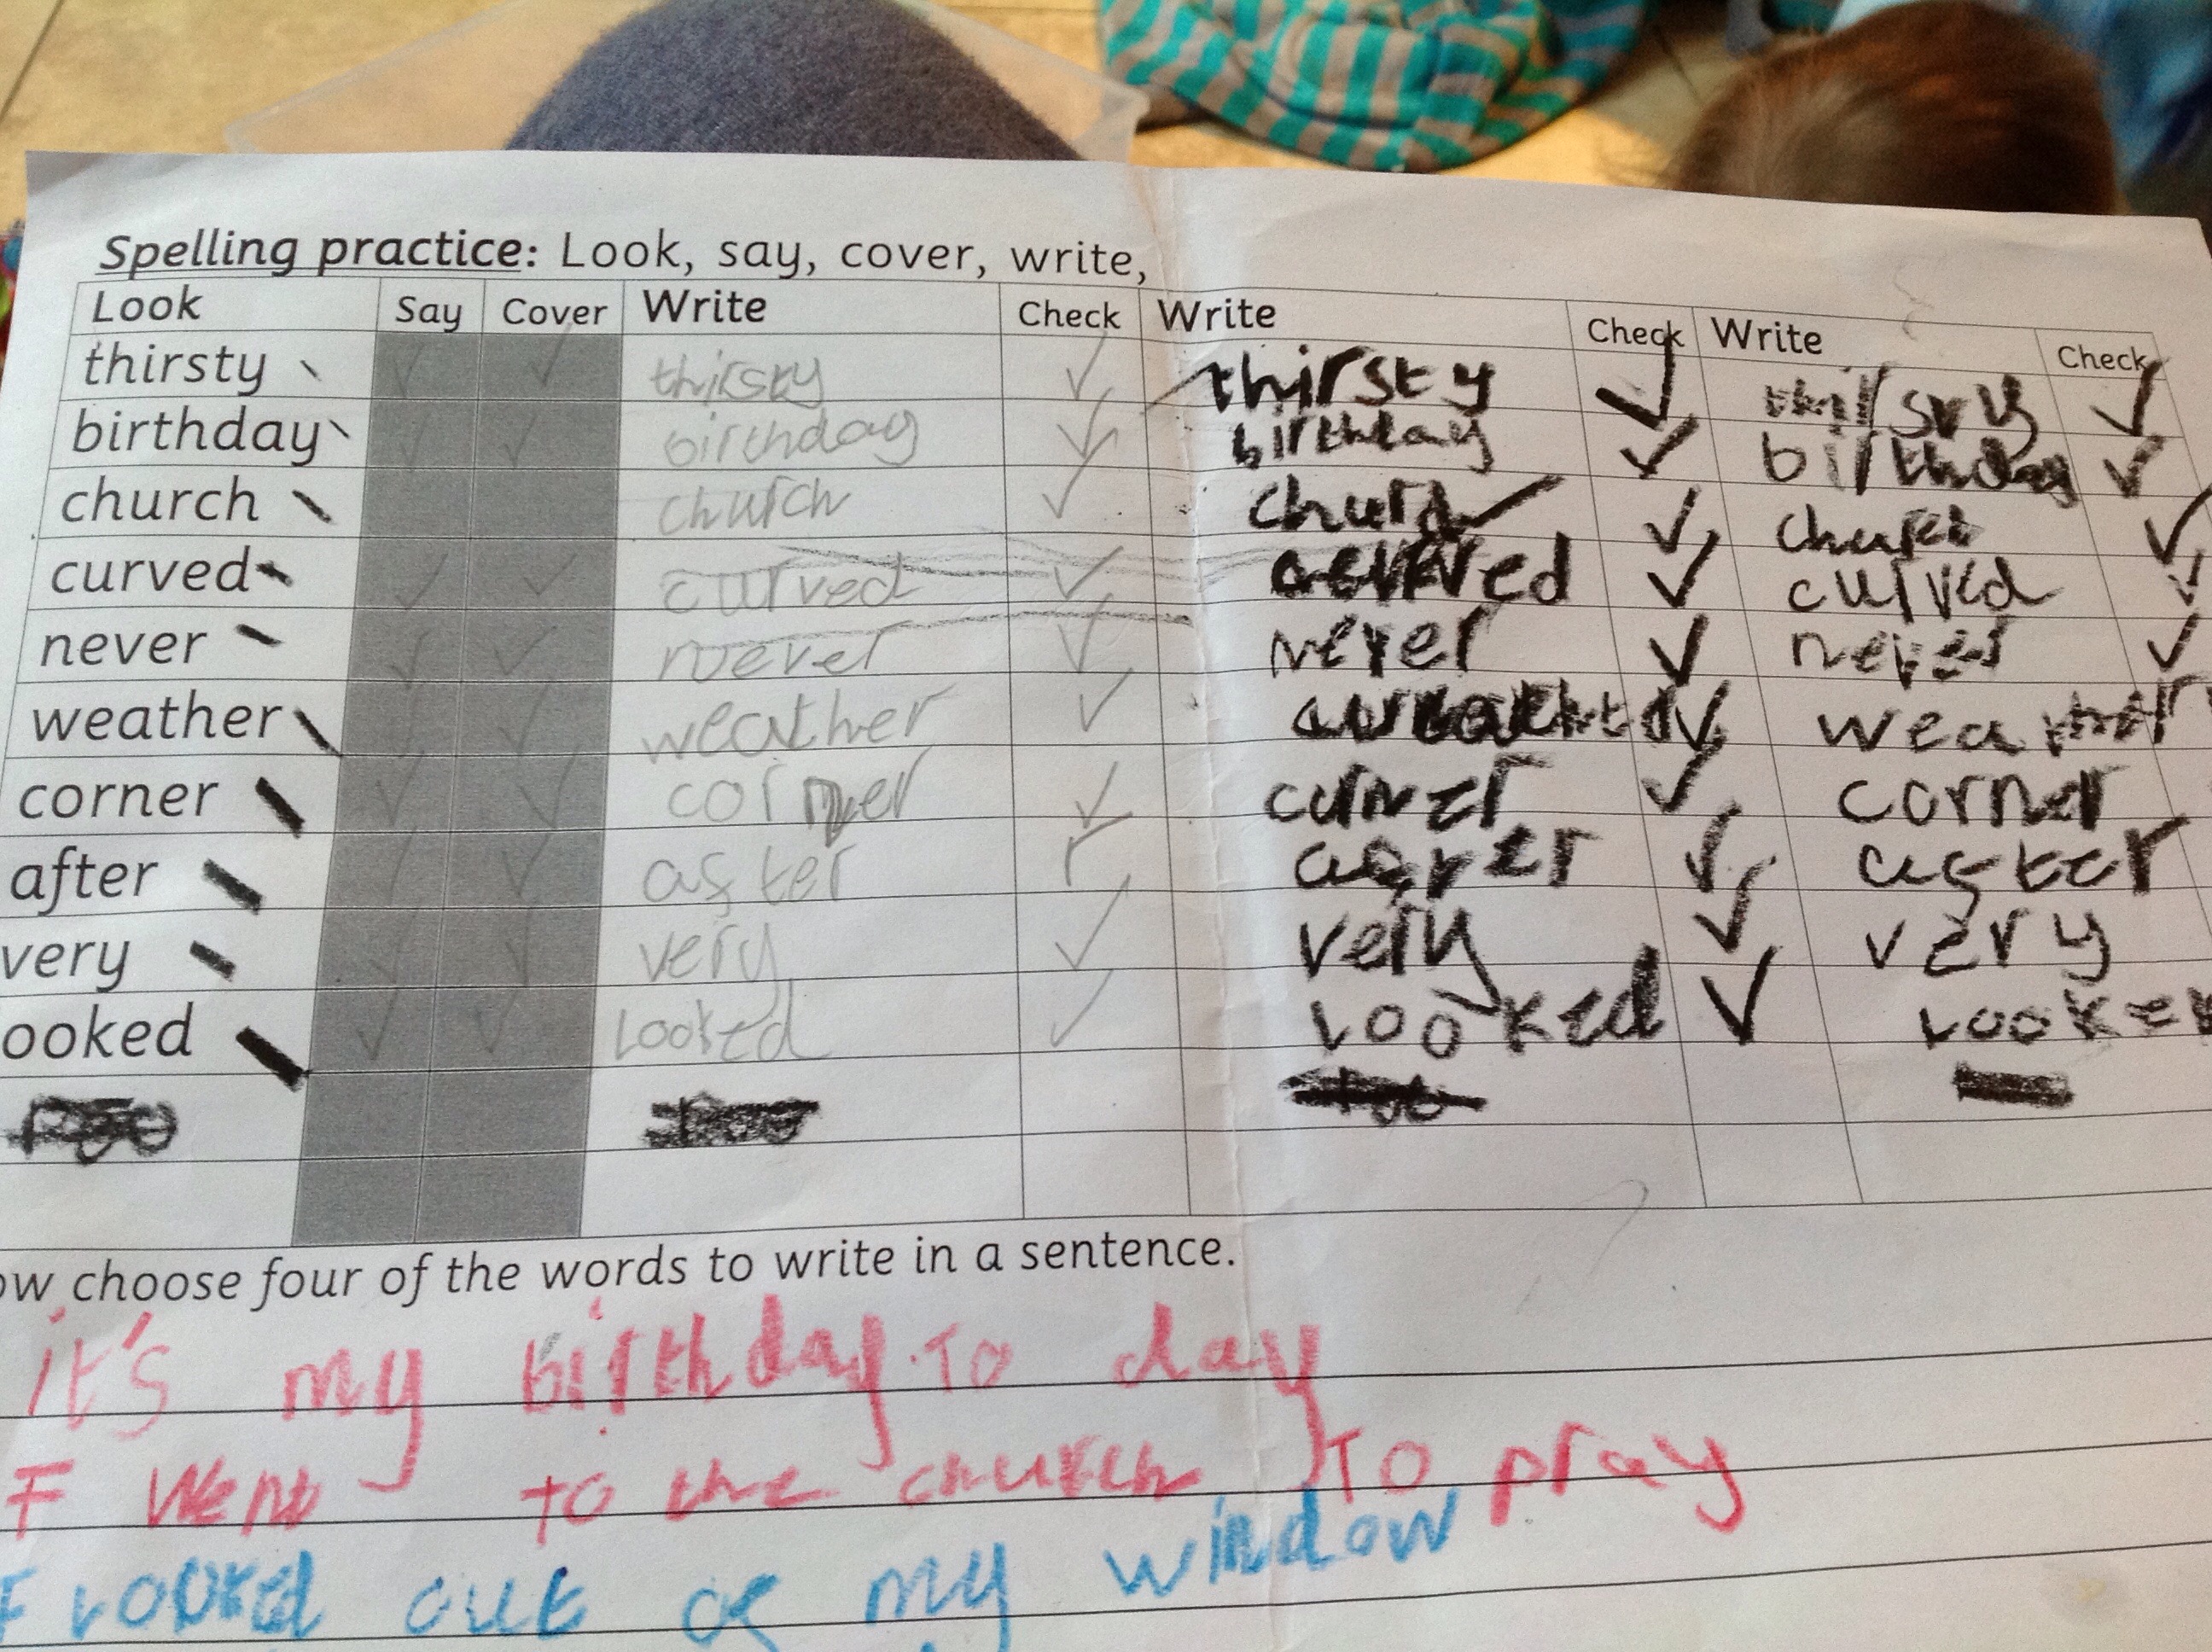 Spelling practice: Look, say, cover, write,
Look Say Cover Write Check Write Check Write Check
thirsty thirsty thirsty
birthday birthday birthday birthday
church church
curved curved curved
never never never never
weather weather
corner corner corner
after after
very very very very
ooked Looked Looked
ow choose four of the words to write in a sentence.
it's my birthday To day
I Went to the church To pray
I Looked out of my window